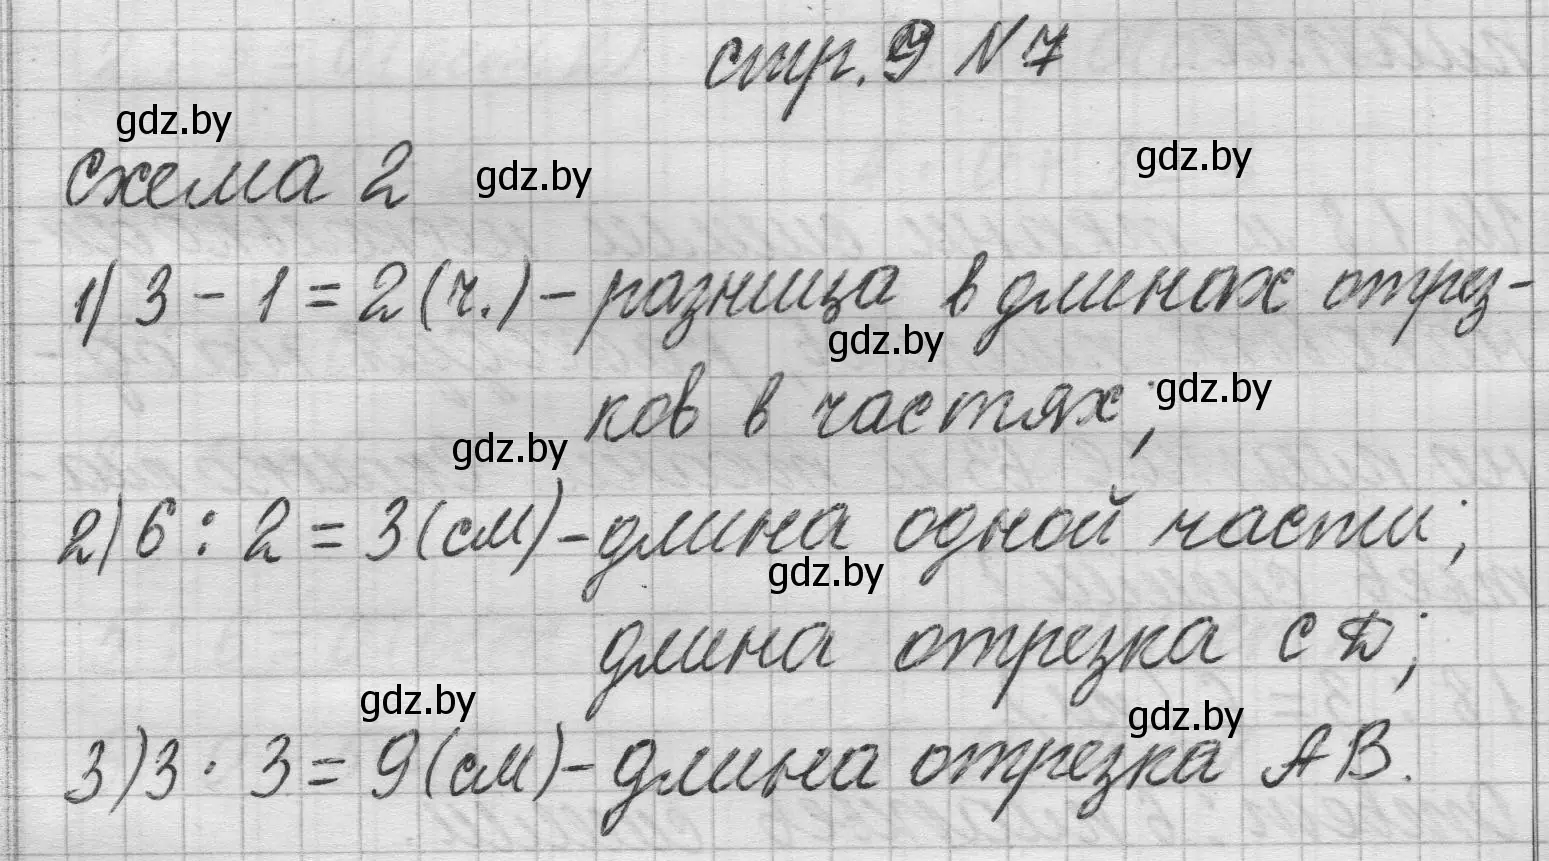 стр. 9 N 7
gdz.by
схема 2 gdz.by gdz.by
1) 3 - 1 = 2 (ч.) - разница в длинах отрез-
gdz.by
ков в частях; gdz.by
gdz.by
2) 6 : 2 = 3 (см) - длина одной части;
gdz.by
длина отрезка CD;
gdz.by gdz.by
3) 3 · 3 = 9 (см) - длина отрезка AB.